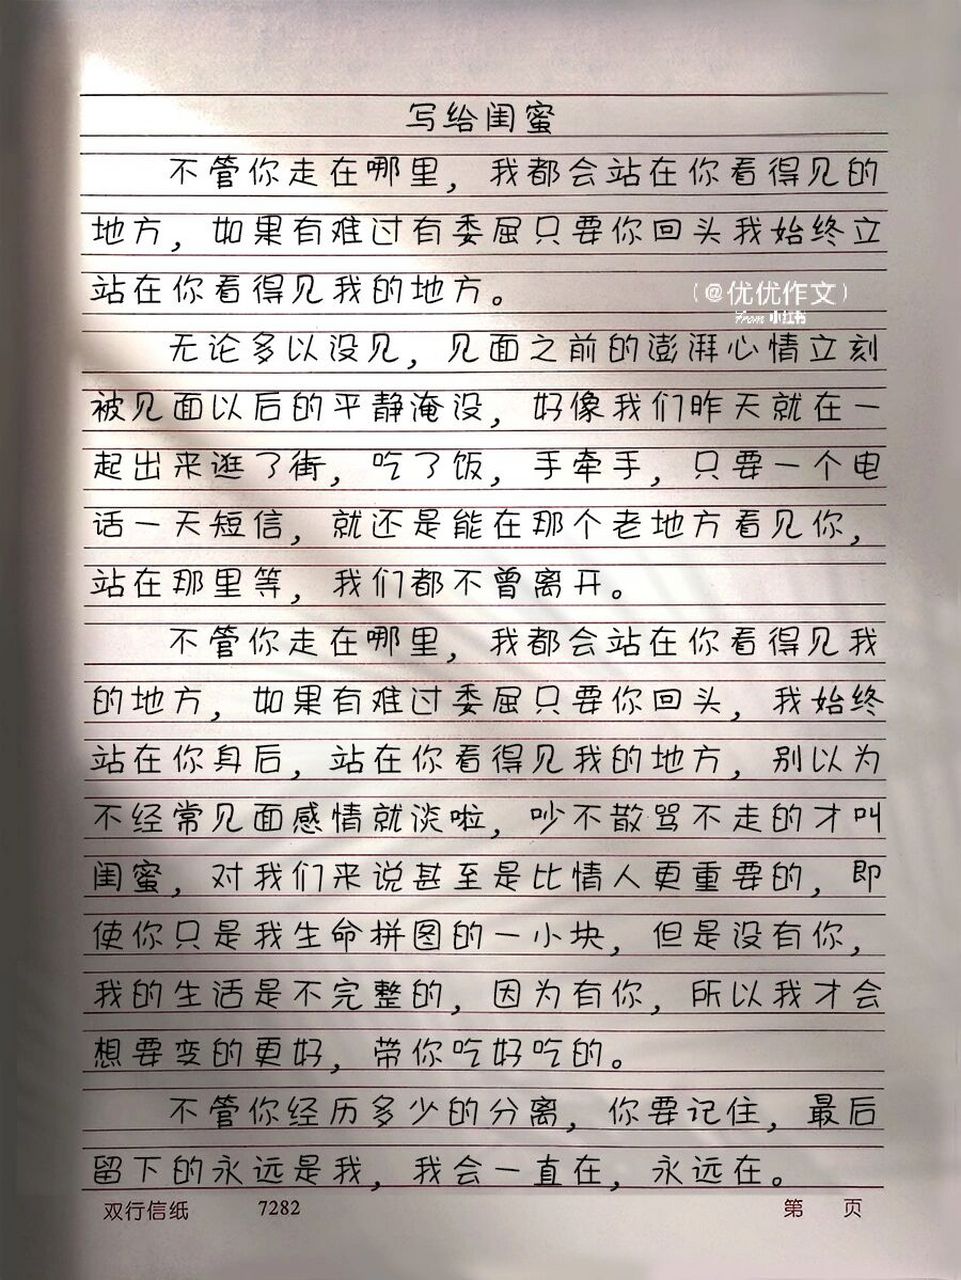 写给闺蜜
不管你走在哪里，我都会站在你看得见的
地方，如果有难过有委屈只要你回头我始终立
站在你看得见我的地方。
（@优优作文）
From 小红书
无论多以没见，见面之前的澎湃心情立刻
被见面以后的平静淹没，好像我们昨天就在一
起出来逛了街，吃了饭，手牵手，只要一个电
话一天短信，就还是能在那个老地方看见你，
站在那里等，我们都不曾离开。
不管你走在哪里，我都会站在你看得见我
的地方，如果有难过委屈只要你回头，我始终
站在你身后，站在你看得见我的地方，别以为
不经常见面感情就淡啦，吵不散骂不走的才叫
闺蜜，对我们来说甚至是比情人更重要的，即
使你只是我生命拼图的一小块，但是没有你，
我的生活是不完整的，因为有你，所以我才会
想要变的更好，带你吃好吃的。
不管你经历多少的分离，你要记住，最后
留下的永远是我，我会一直在，永远在。
双行信纸 7282 第 页